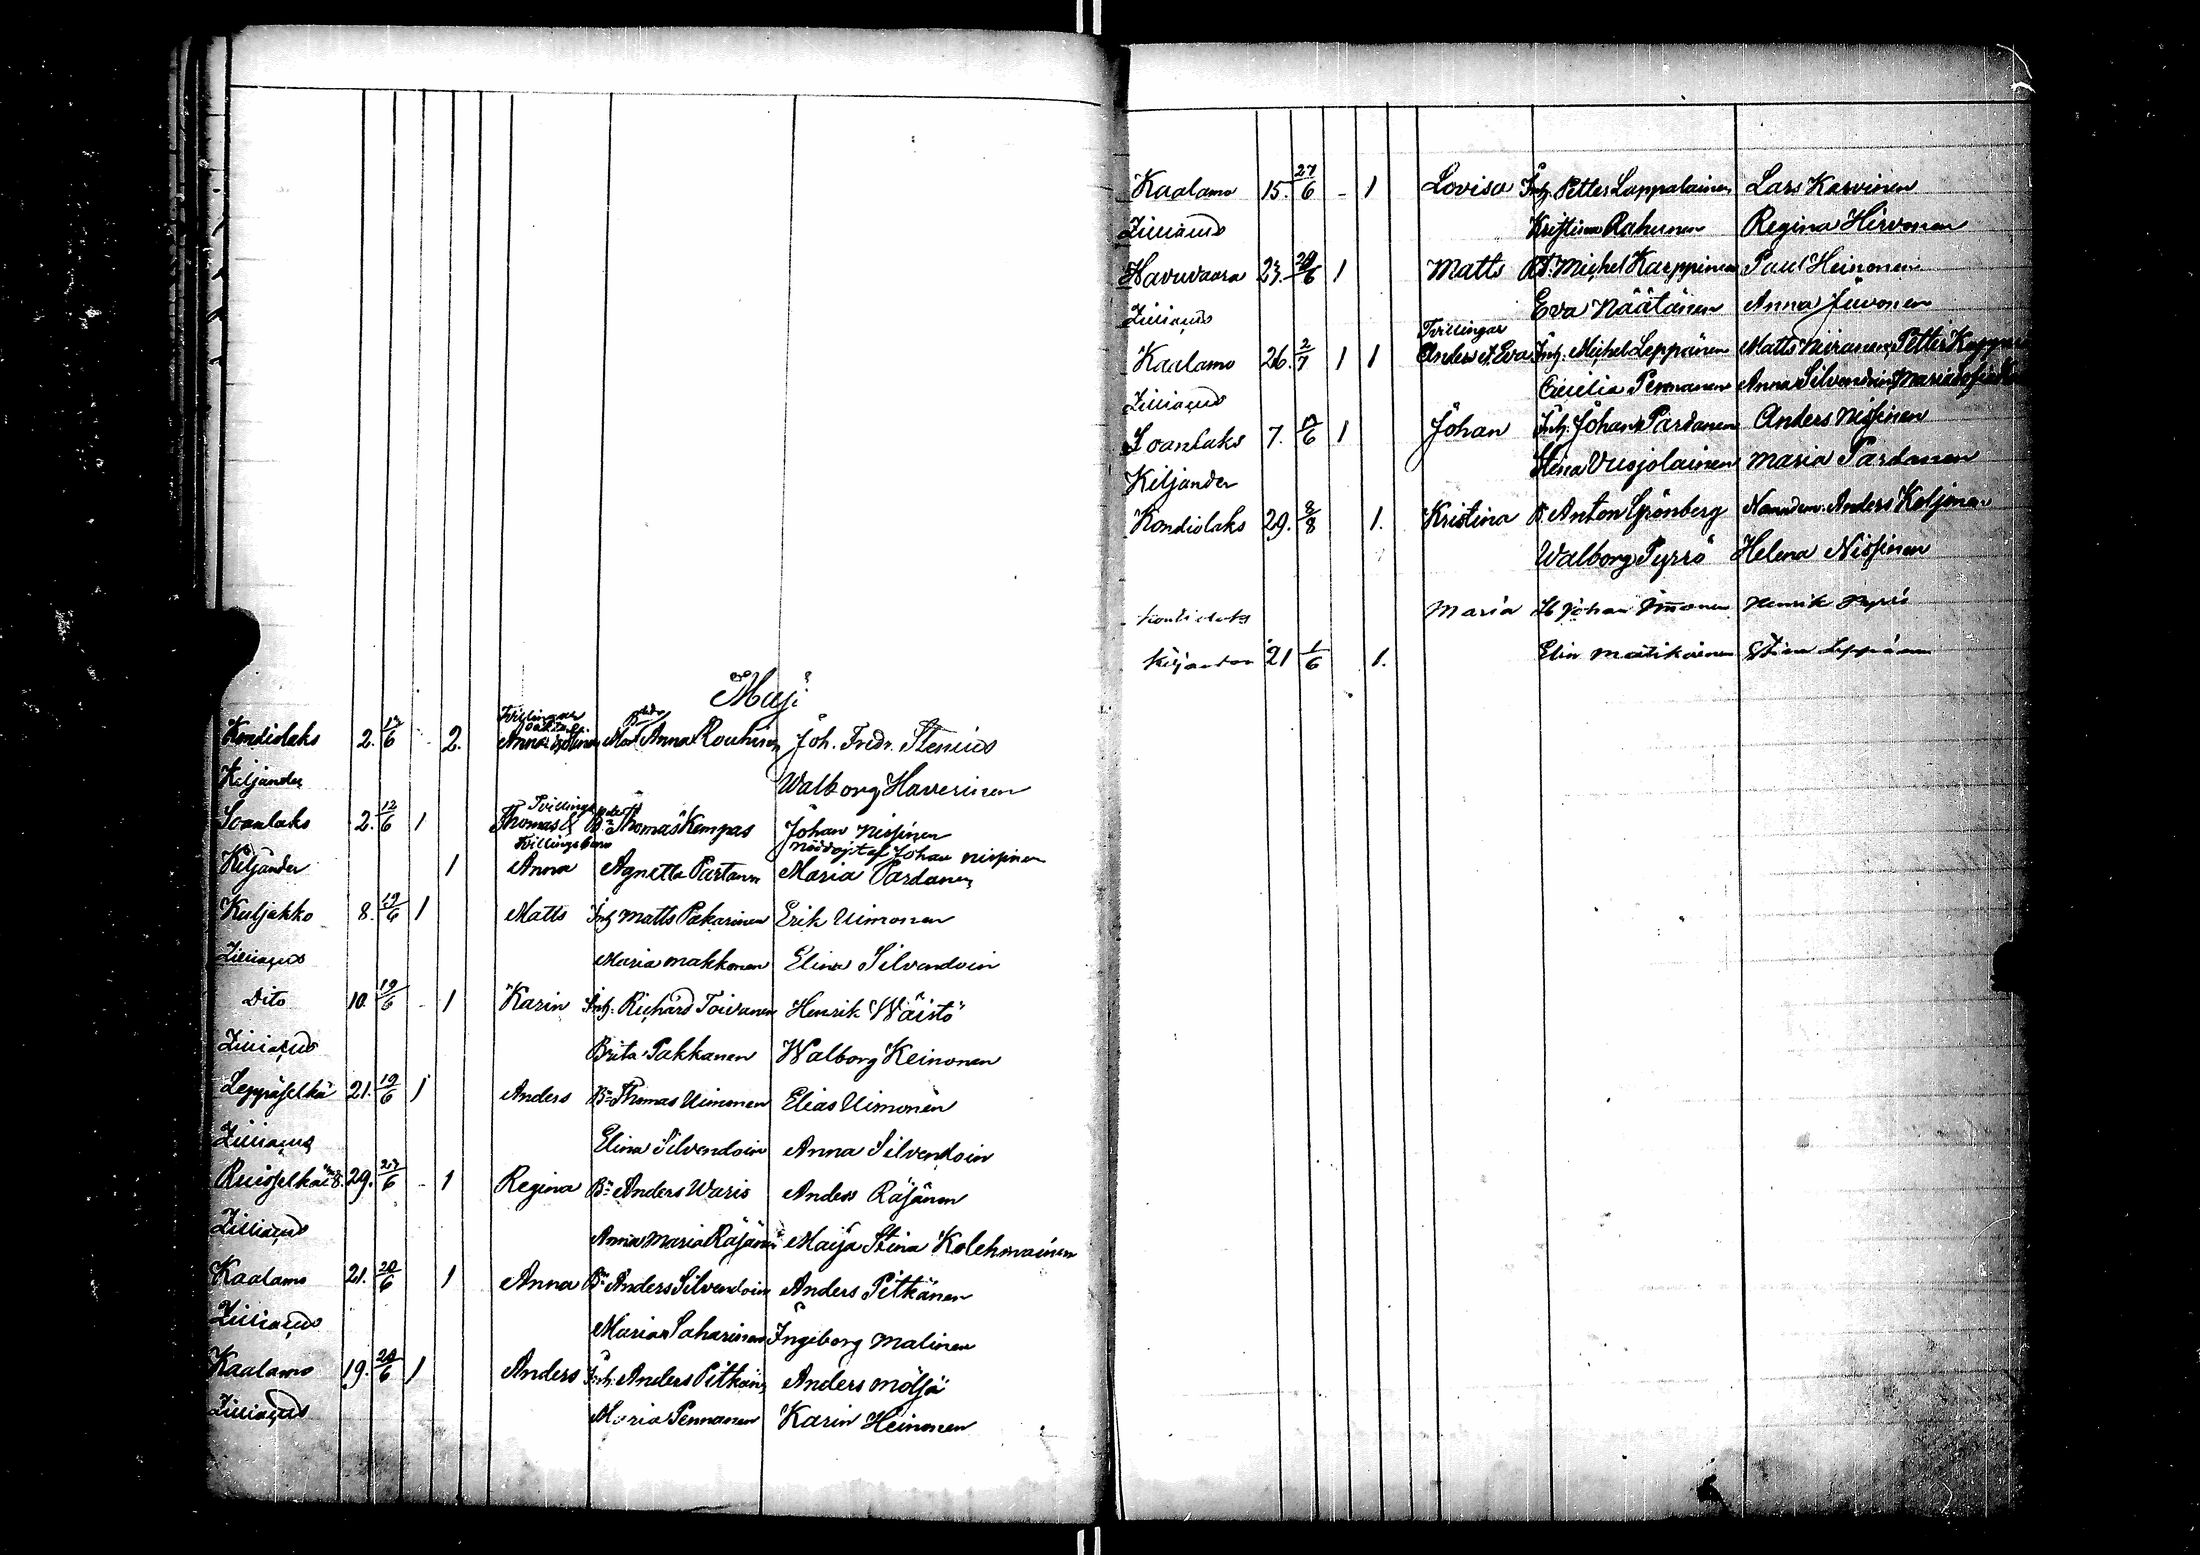 Maji
Tvillingar
oäkta
Kondiolaks 2. 12/6 - 2. Anna Rouhiain Joh. Fredr. Stenius
Kiljander Walborg Haverinen
Tvillingb.
Soanlaks 2. 12/6 1 Thomas & Bn Thomas Kempas Johan Nissinen
Tvillingsbarn Nöddöpt af Johan Nissinen
Kiljander 1 Anna Agnetta Partanen Maria Pardanen
Kuljakko 8. 19/6 1 Matts Inh. Matts Pakarinen Erik Uimonen
Zilliacus Maria Makkonen Elina Silvendoin
Dito 10. 19/6 - 1 Karin Inh. Richard Toivanen Henrik Wäistö
Zilliacus Brita Pakkanen Walborg Keinonen
Leppäselkä 21. 19/6 1 Anders Bn Thomas Uimonen Elias Uimonen
Zilliacus Elina Silvendoin Anna Silvendoin
Ruisselkä 29. 27/6 - 1 Regina Bn Anders Waris Anders Räsänen
Zilliacus Anna Maria Räsänen Maija Stina Kolehmainen
Kaalamo 21. 20/6 1 Anna Bn Anders Silvendoin Anders Pitkänen
Zilliacus Maria Saharinen Ingeborg Malinen
Kaalamo 19. 20/6 1 Anders Inh. Anders Pitkän Anders Mölsä
Zilliacus Maria Pennanen Karin Heinonen
Kaalamo 15. 27/6 - 1 Lovisa Inh. Petter Lappalainen Lars Karvinen
Zilliacus Kristina Rahunen Regina Hirvonen
Havuvaara 23. 29/6 1 Matts Michel Karppinen Paul Heinonen
Zilliacus Eva Näätänen Anna Juvonen
Tvillingar
Kaalamo 26. 2/7 1 1 Anders & Eva Inh. Michel Leppänen Matts Niiranen, Petter
Zilliacus Cecilia Pennanen Anna Silvendoin, Maria
Soanlaks 7. 12/6 1 Johan Inh. Johan Pardanen Anders Nissinen
Kiljander Stina Vuojolainen Maria Pardanen
Kondiolaks 29. 8/8 1. Kristina B. Anton Grönberg Nämndem. Anders Koljonen
Walborg Pyrrö Helena Nissinen
Kondiolaks Maria Johan Immonen Henrik Pyrrö
Kiljander 21 1/6 1. Elin Matikainen Stina Leppänen